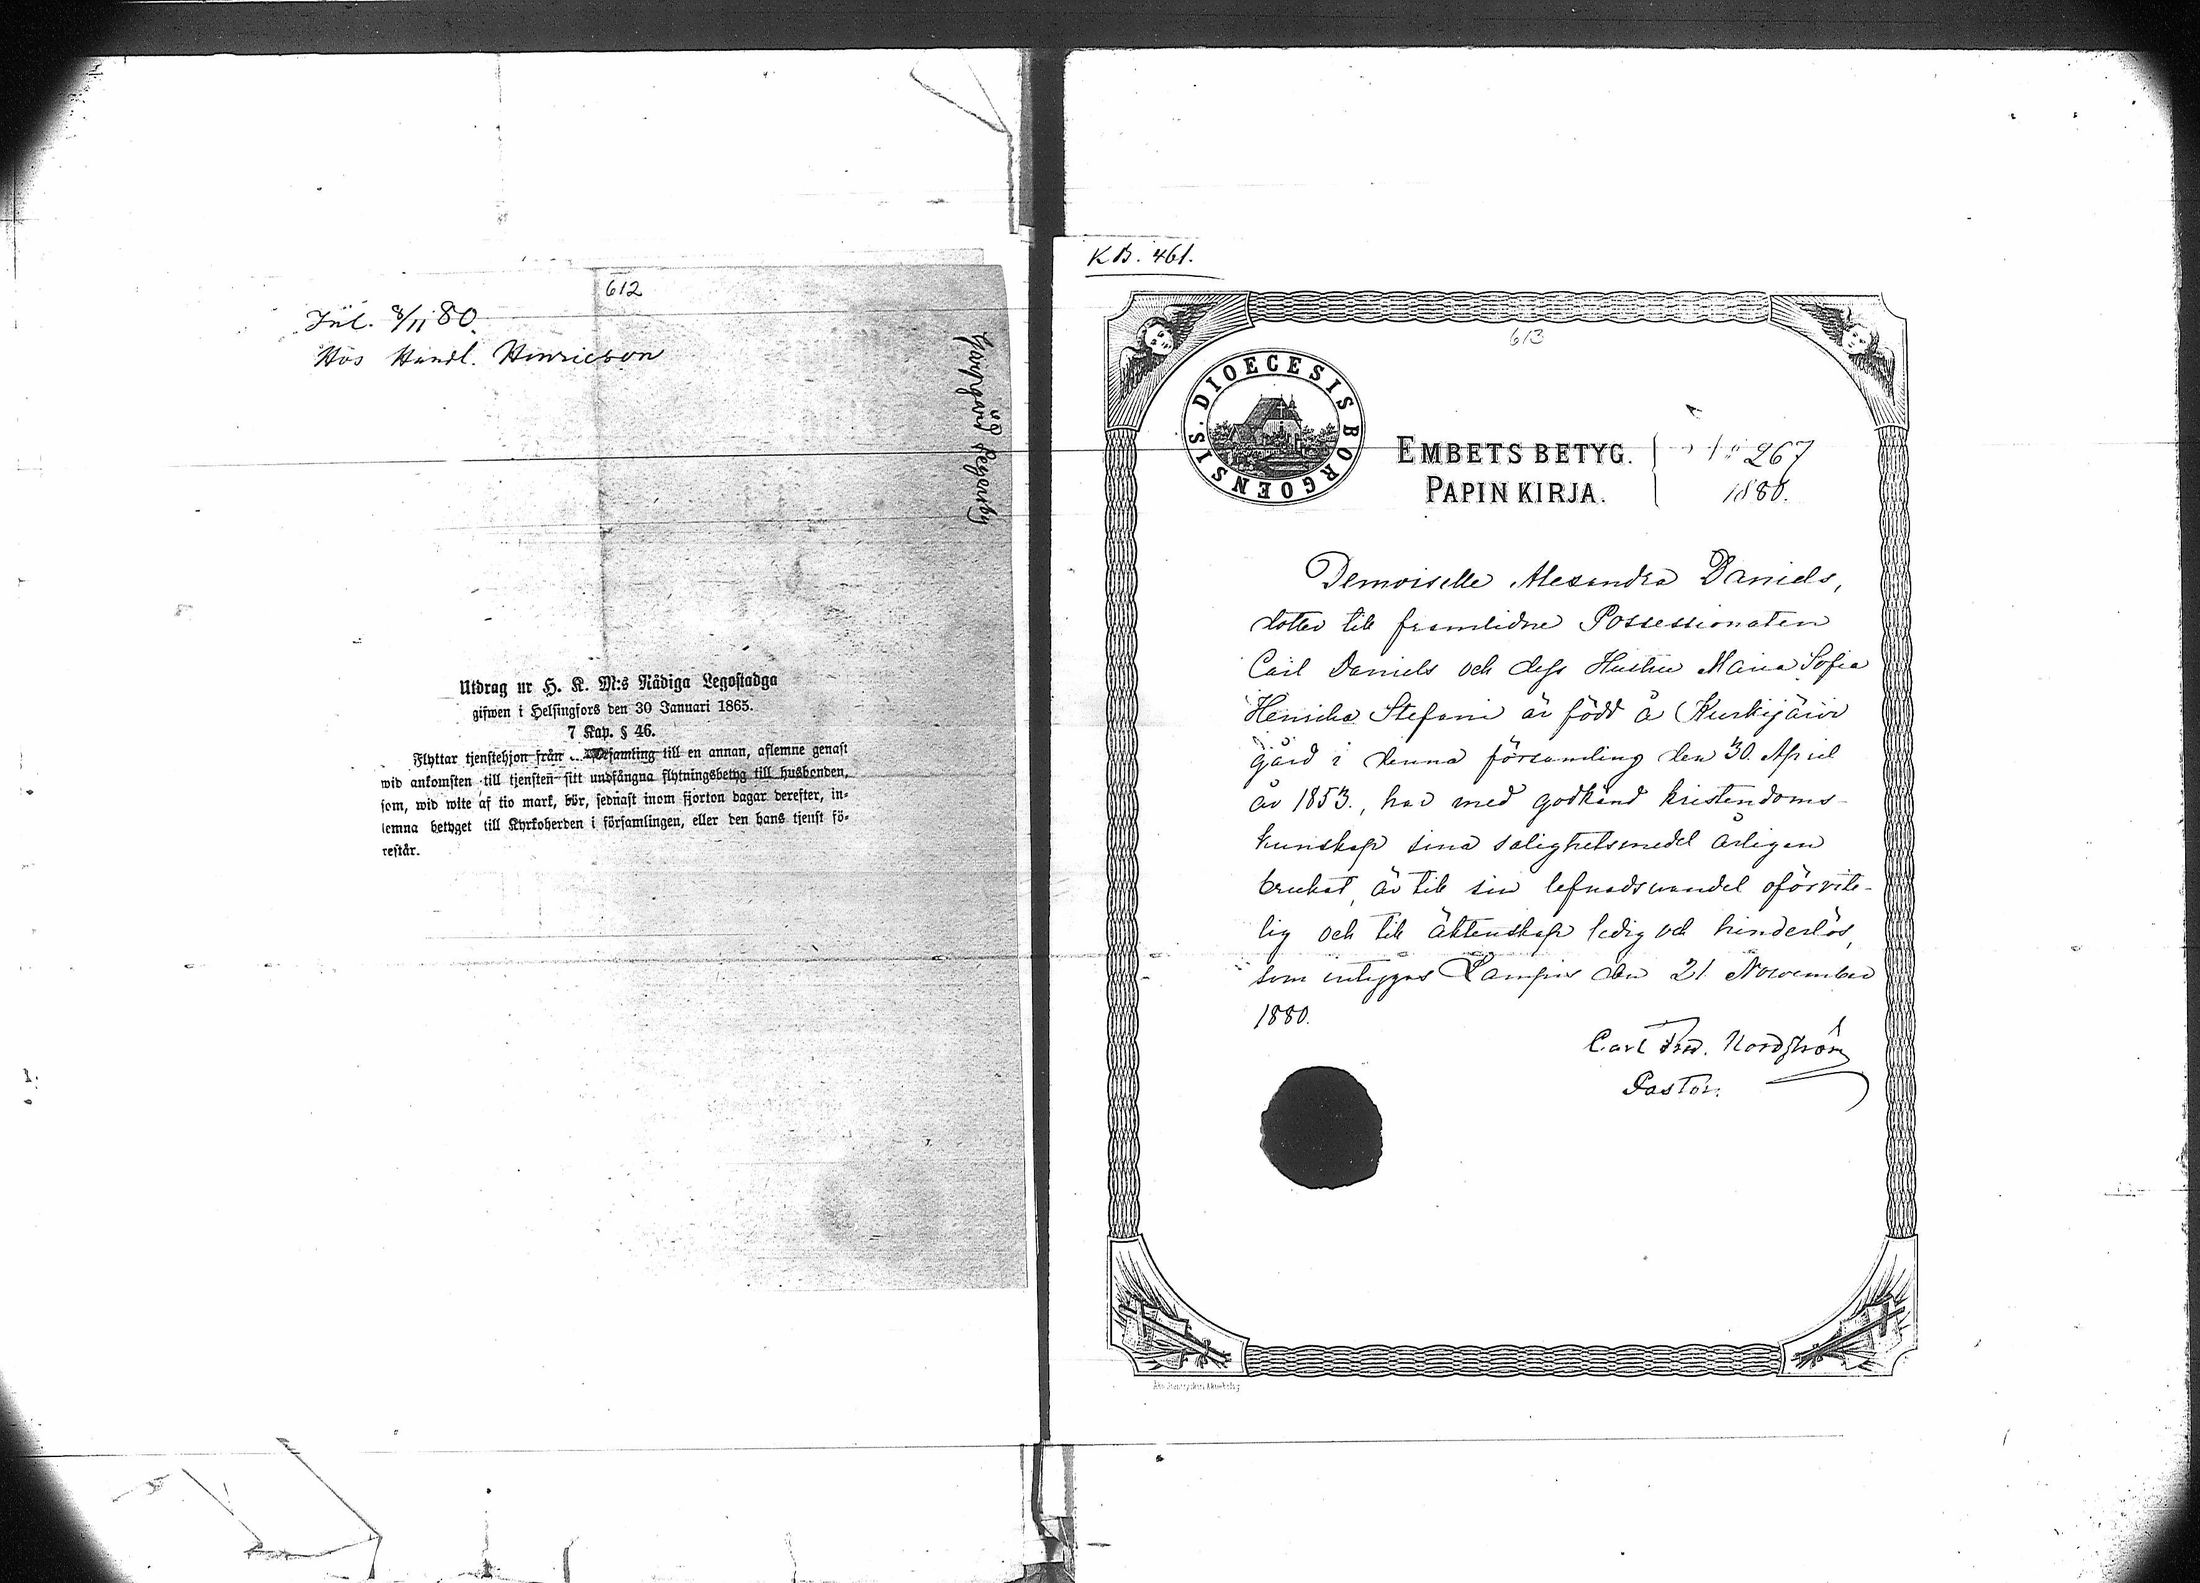 612
Inl. 8/11 80.
Hos Handl. Hinricson
Utdrag ur H. K. M:s Nådiga Legostadga
gifwen i Helsingfors den 30 Januari 1865.
7 Kap. § 46.
Flyttar tjenstehjon från församling till en annan, aflemne genast
wid ankomsten till tjensten sitt undfångna flyttningsbetyg till husbonden,
som, wid wite af tio mark, bör, sednast inom fjorton dagar derefter, in-
lemna betyget till Kyrkoherden i församlingen, eller den hans tjenst fö-
restår.
KB. 461.
613
DIOECESIS BORGOENSIS.
EMBETS BETYG.
PAPIN KIRJA.
No 267
1880.
Demoiselle Alexandra Daniels,
dotter till framlidne Possessionaten
Carl Daniels och dess Hustru Maria Sofia
Henrika Stefani är född å Kurkijärvi
gård i denna församling den 30 April
år 1853., har med godkänd kristendoms-
kunskap sina salighetsmedel årligen
brukat, är till sin lefnadsvandel oförvite-
lig och till äktenskap ledig och hinderlös,
som intygas Lampis den 21 November
1880.
Carl Fred. Nordström
Pastor.